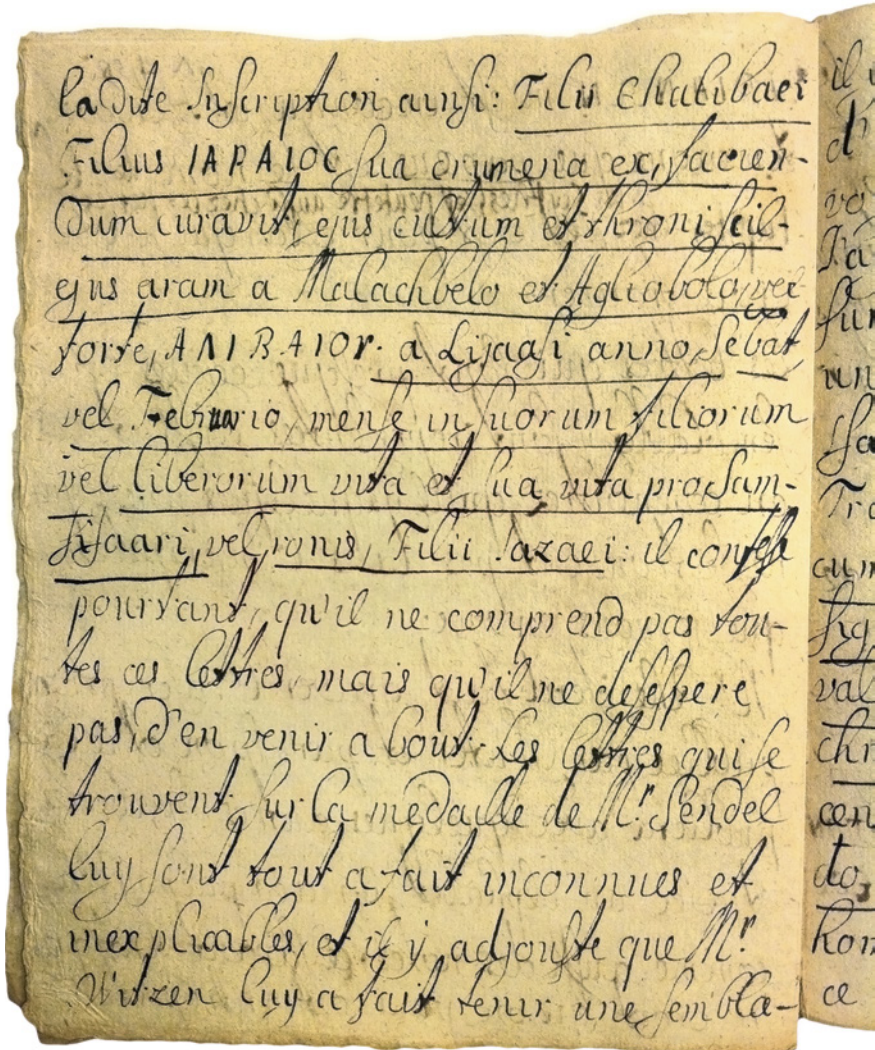 la dite Inscription ainsi: Filii Chalibaei
Filius IAPAIOC sua crumena ex, facien-
dum curavit, ejus cultum et throni scil-
ejus aram a Malachbelo et Aglibolo, vel
forte, ANIBAIOY. a Lijaasi anno, Sebat,
vel Februario, mense in suorum filiorum
vel liberorum vita et sua vita pro, Sam-
sisaari, vel, ronis, Filii Sazaei: il confesse
pourtant, qu'il ne comprend pas tou-
tes ces lettres, mais qu'il ne desespere
pas, d'en venir a bout. Les lettres qui se
trouvent sur la medaille de Mr. Sendel
luy sont tout a fait inconnues et
inexplicables, et il y adjouste que Mr.
Witzen luy a fait tenir une sembla-
il
d'
vo
Fa
sur
un
Tra
cum
sig
val
chr
cen
do,
hon
ce